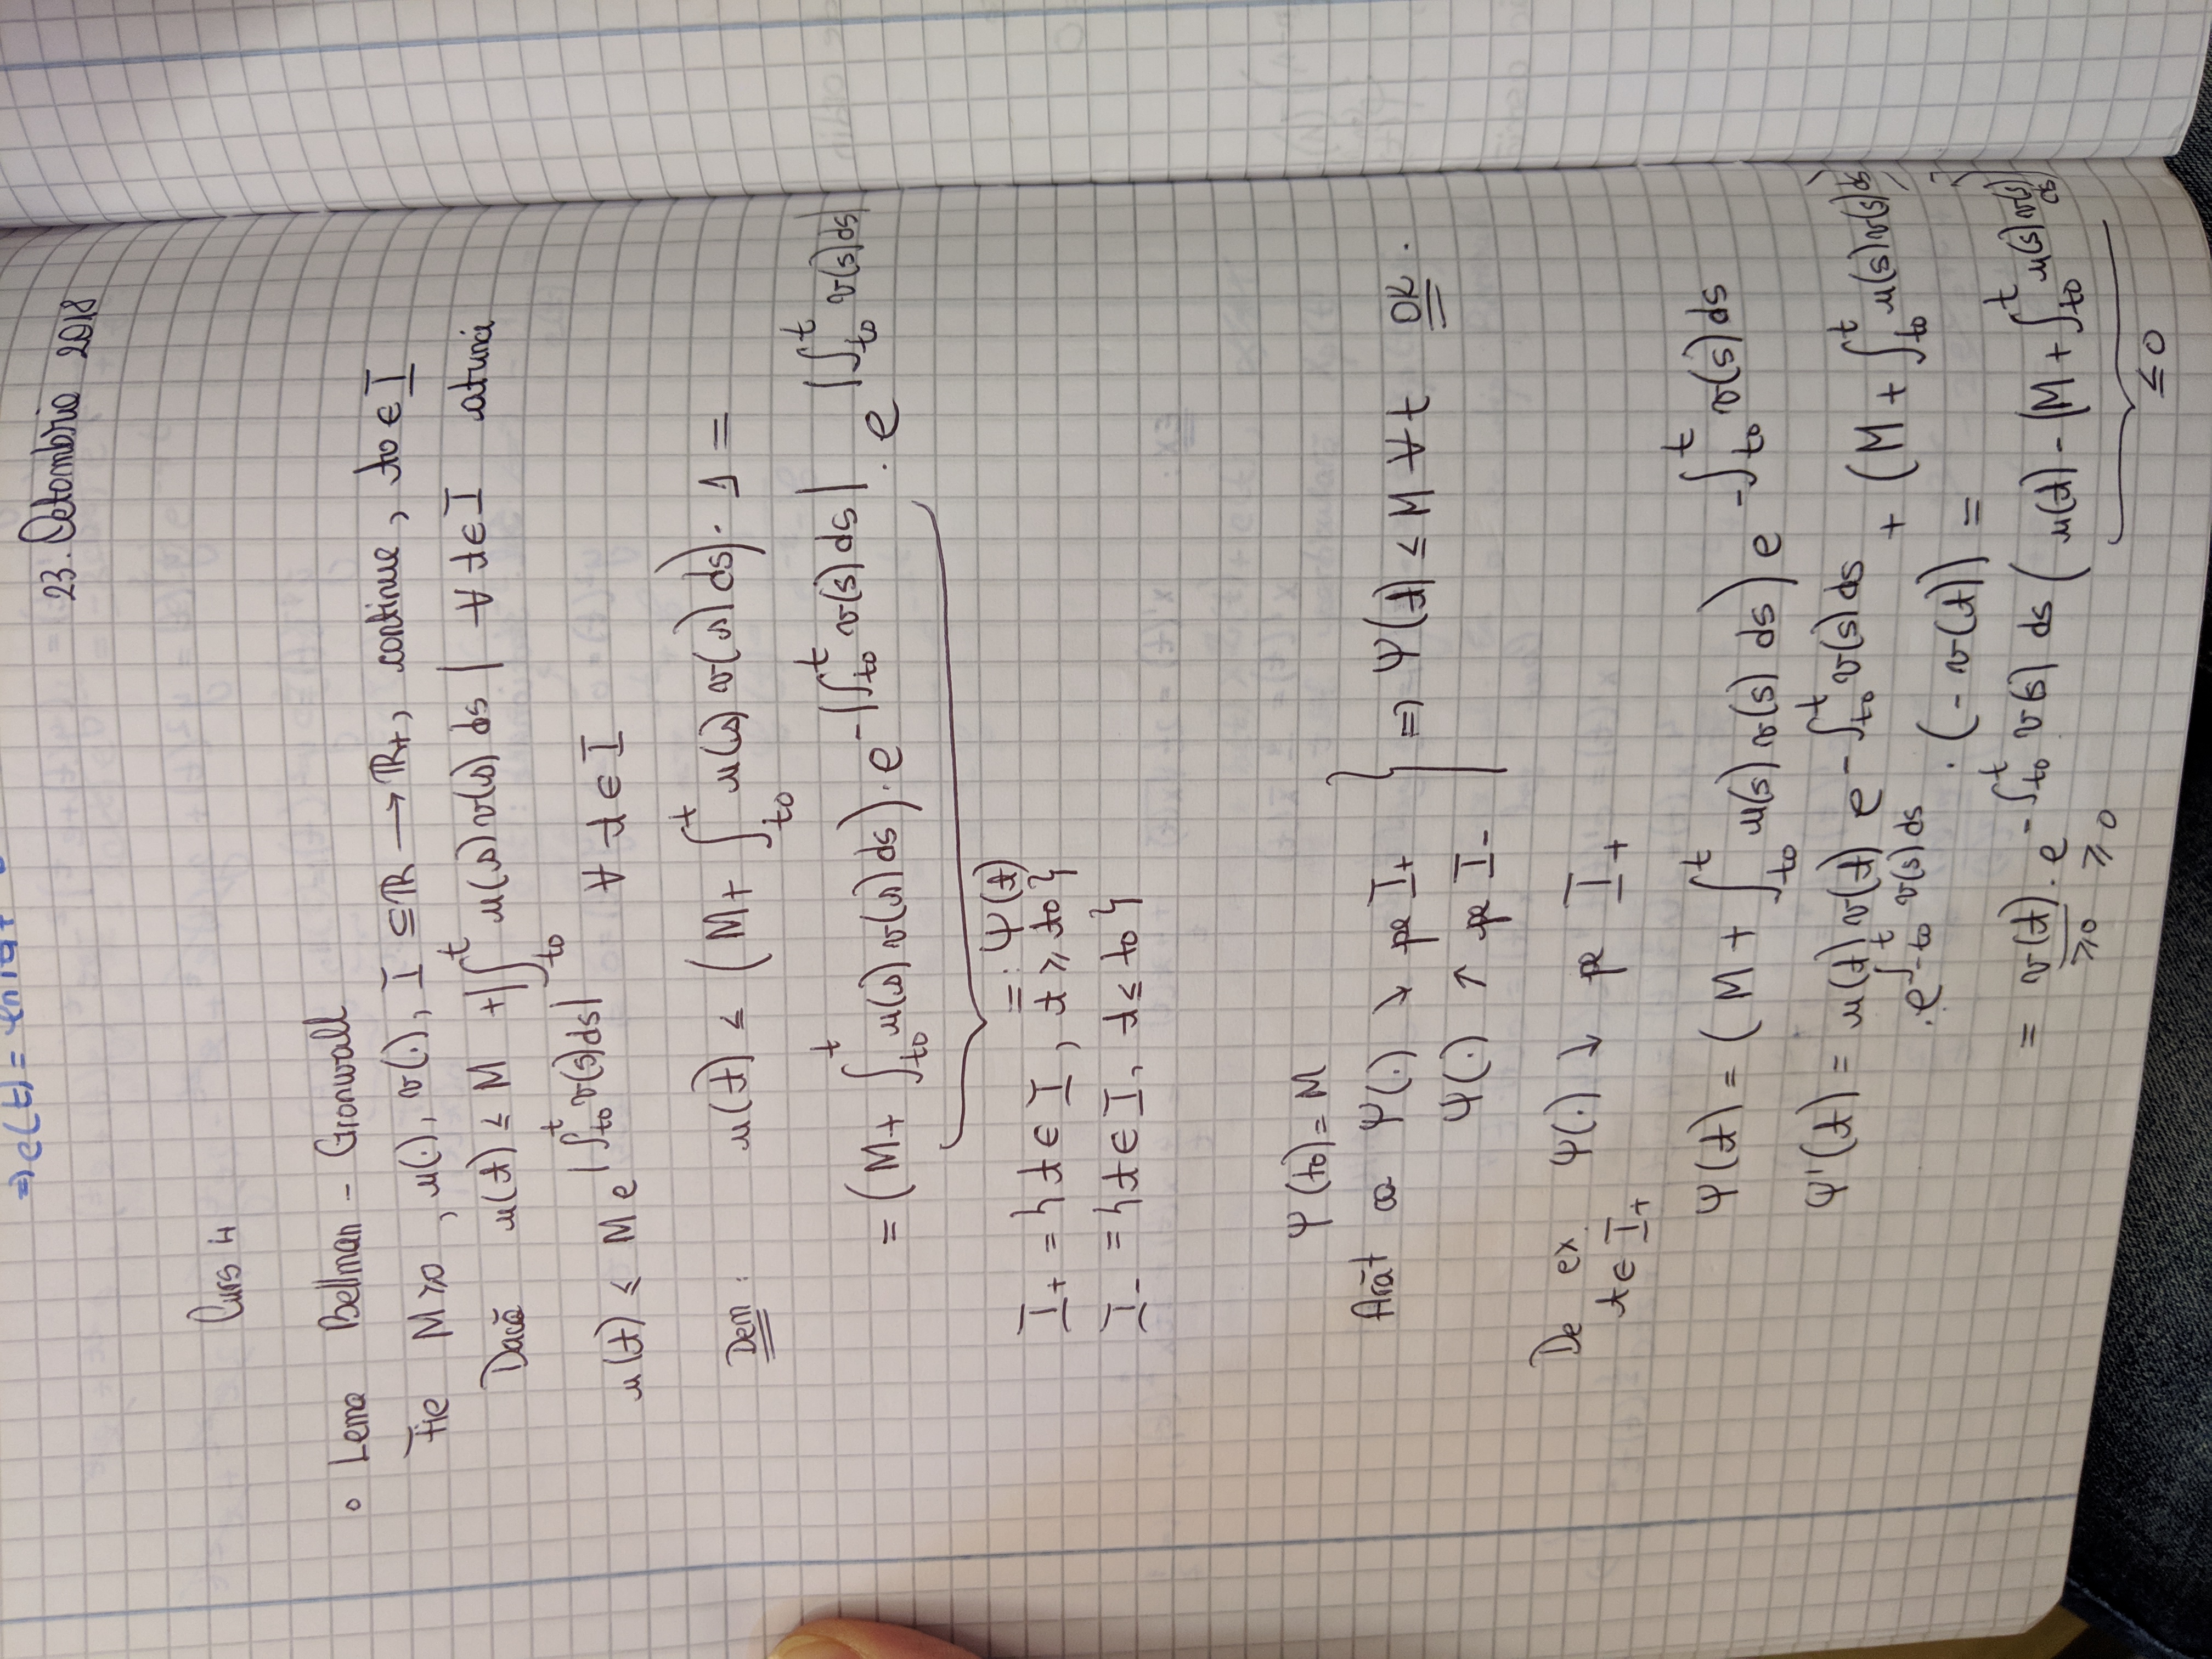 ⇒ c(t) =
23. Octombrie 2018
Curs 4
∘ Lema Bellman - Gronwall
Fie M ≥ 0, u(·), v(·), I ⊆ ℝ → ℝ+, continue, t0 ∈ I
Dacă u(t) ≤ M + |∫_{t0}^{t} u(s) v(s) ds| ∀ t ∈ I atunci
u(t) ≤ M e^{|∫_{t0}^{t} v(s) ds|} ∀ t ∈ I
Dem: u(t) ≤ (M + ∫_{t0}^{t} u(s) v(s) ds) · 1 =
= (M + ∫_{t0}^{t} u(s) v(s) ds) · e^{-|∫_{t0}^{t} v(s) ds|} · e^{|∫_{t0}^{t} v(s) ds|}
=: Ψ(t)
I+ = {t ∈ I, t ≥ t0}
I- = {t ∈ I, t ≤ t0}
Ψ(t0) = M
Arăt ca Ψ(·) ↘ pe I+
} ⇒ Ψ(t) ≤ M ∀ t OK.
Ψ(·) ↑ pe I-
De ex. Ψ(·) ↓ pe I+
t ∈ I+
Ψ(t) = (M + ∫_{t0}^{t} u(s) v(s) ds) e^{-∫_{t0}^{t} v(s) ds}
Ψ'(t) = u(t) v(t) e^{-∫_{t0}^{t} v(s) ds} + (M + ∫_{t0}^{t} u(s) v(s) ds)
· e^{∫_{-t0}^{t} v(s) ds} · (- v(t)) =
= v(t) · e^{-∫_{t0}^{t} v(s) ds} (u(t) - (M + ∫_{t0}^{t} u(s) v(s) ds)
≥0 ≥0 ≤0